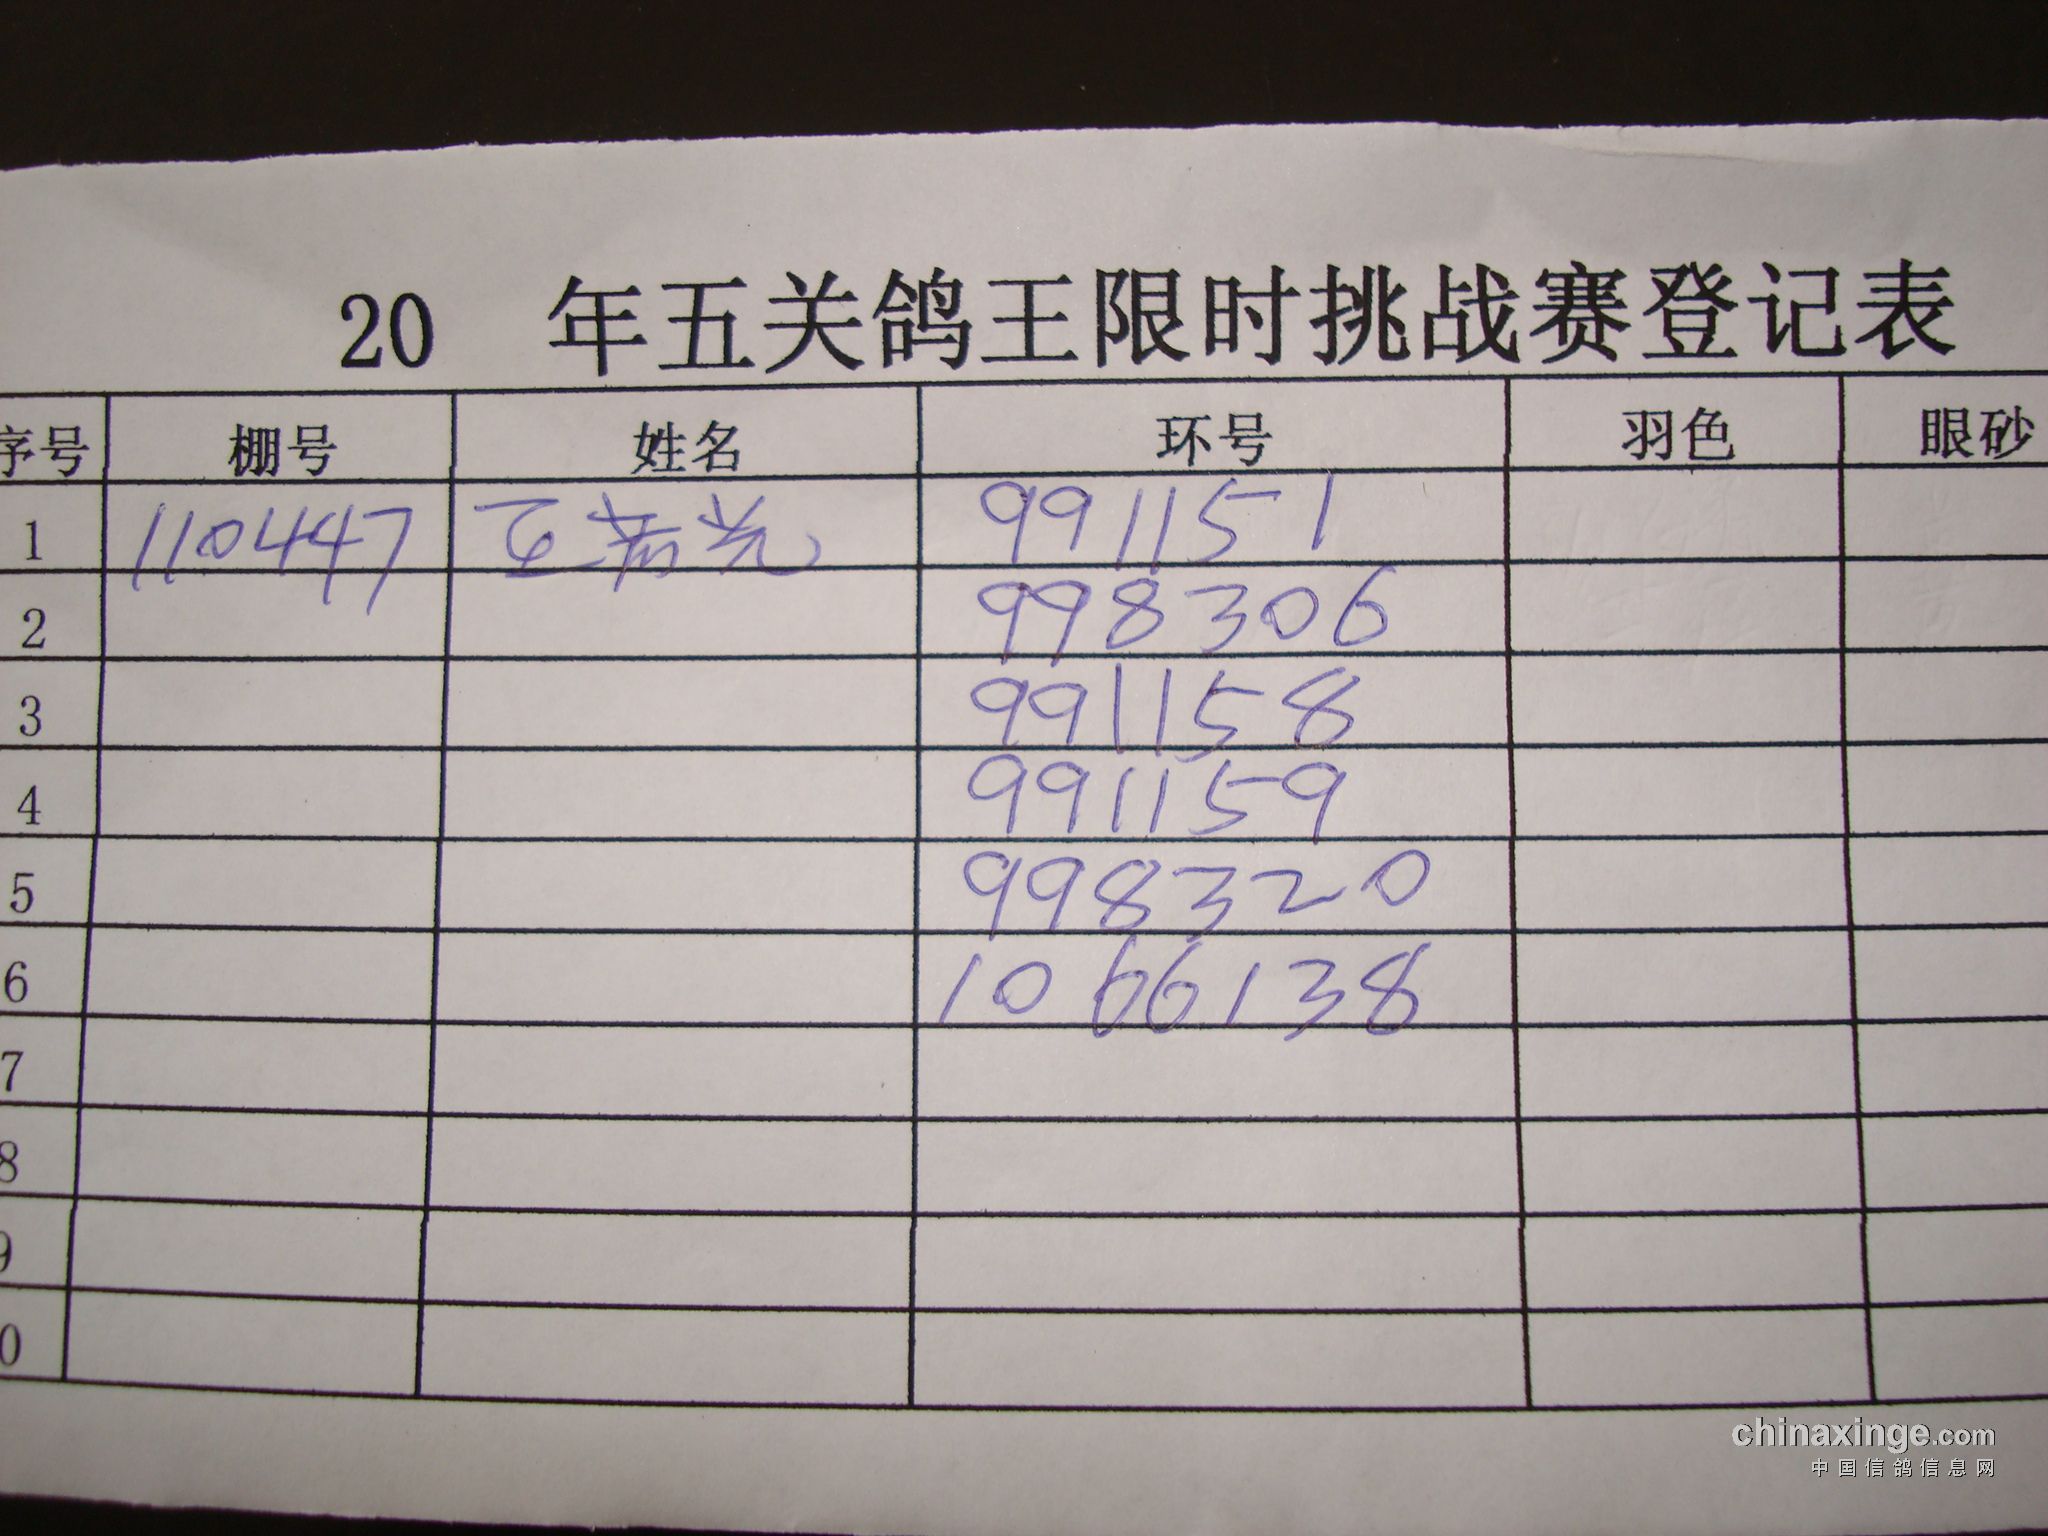 20 年五关鸽王限时挑战赛登记表
序号 棚号 姓名 环号 羽色 眼砂
1 110447 991151
2 998306
3 991158
4 991159
5 998320
6 1066138
7
8
9
0
chinaxinge.com
中国信鸽信息网